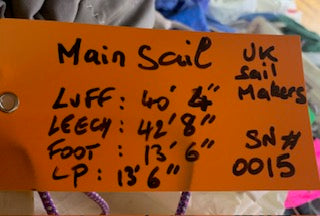 Main Sail
LUFF: 40' 4"
LEECH: 42' 8"
FOOT: 13' 6"
LP: 13'6"
UK
Sail
Makers
SN#
0015